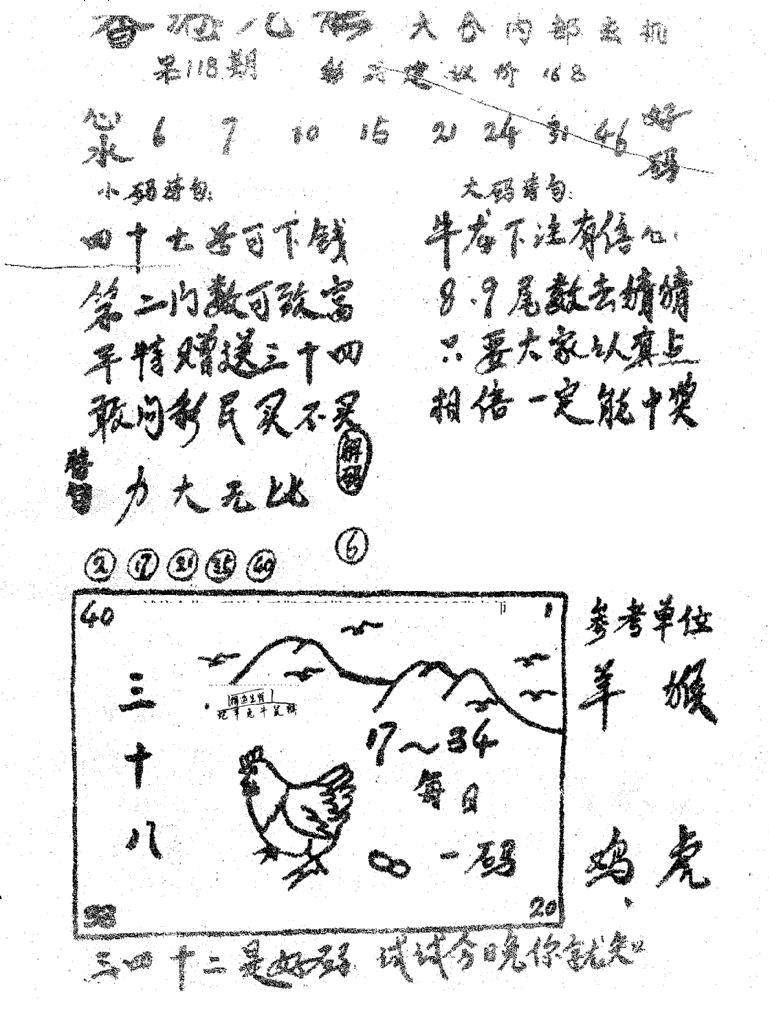 六合内部玄机
第118期 彩方建议价168
心水 6 7 10 15 21 24 31 46 好码
小码诗句: 大码诗句:
四十七号可下钱 牛龙下注有信心
第二门数可致富 8.9尾数去猜猜
平特赠送三十四 只要大家认真点
敢问彩民买不买 相信一定能中奖
力大无比 解码
6
2 17 21 35 40
40 1
参考单位
羊 猴
三十八
17~34
每日
一码
鸡 虎
38 20
三四十二是好码 试试今晚你就知